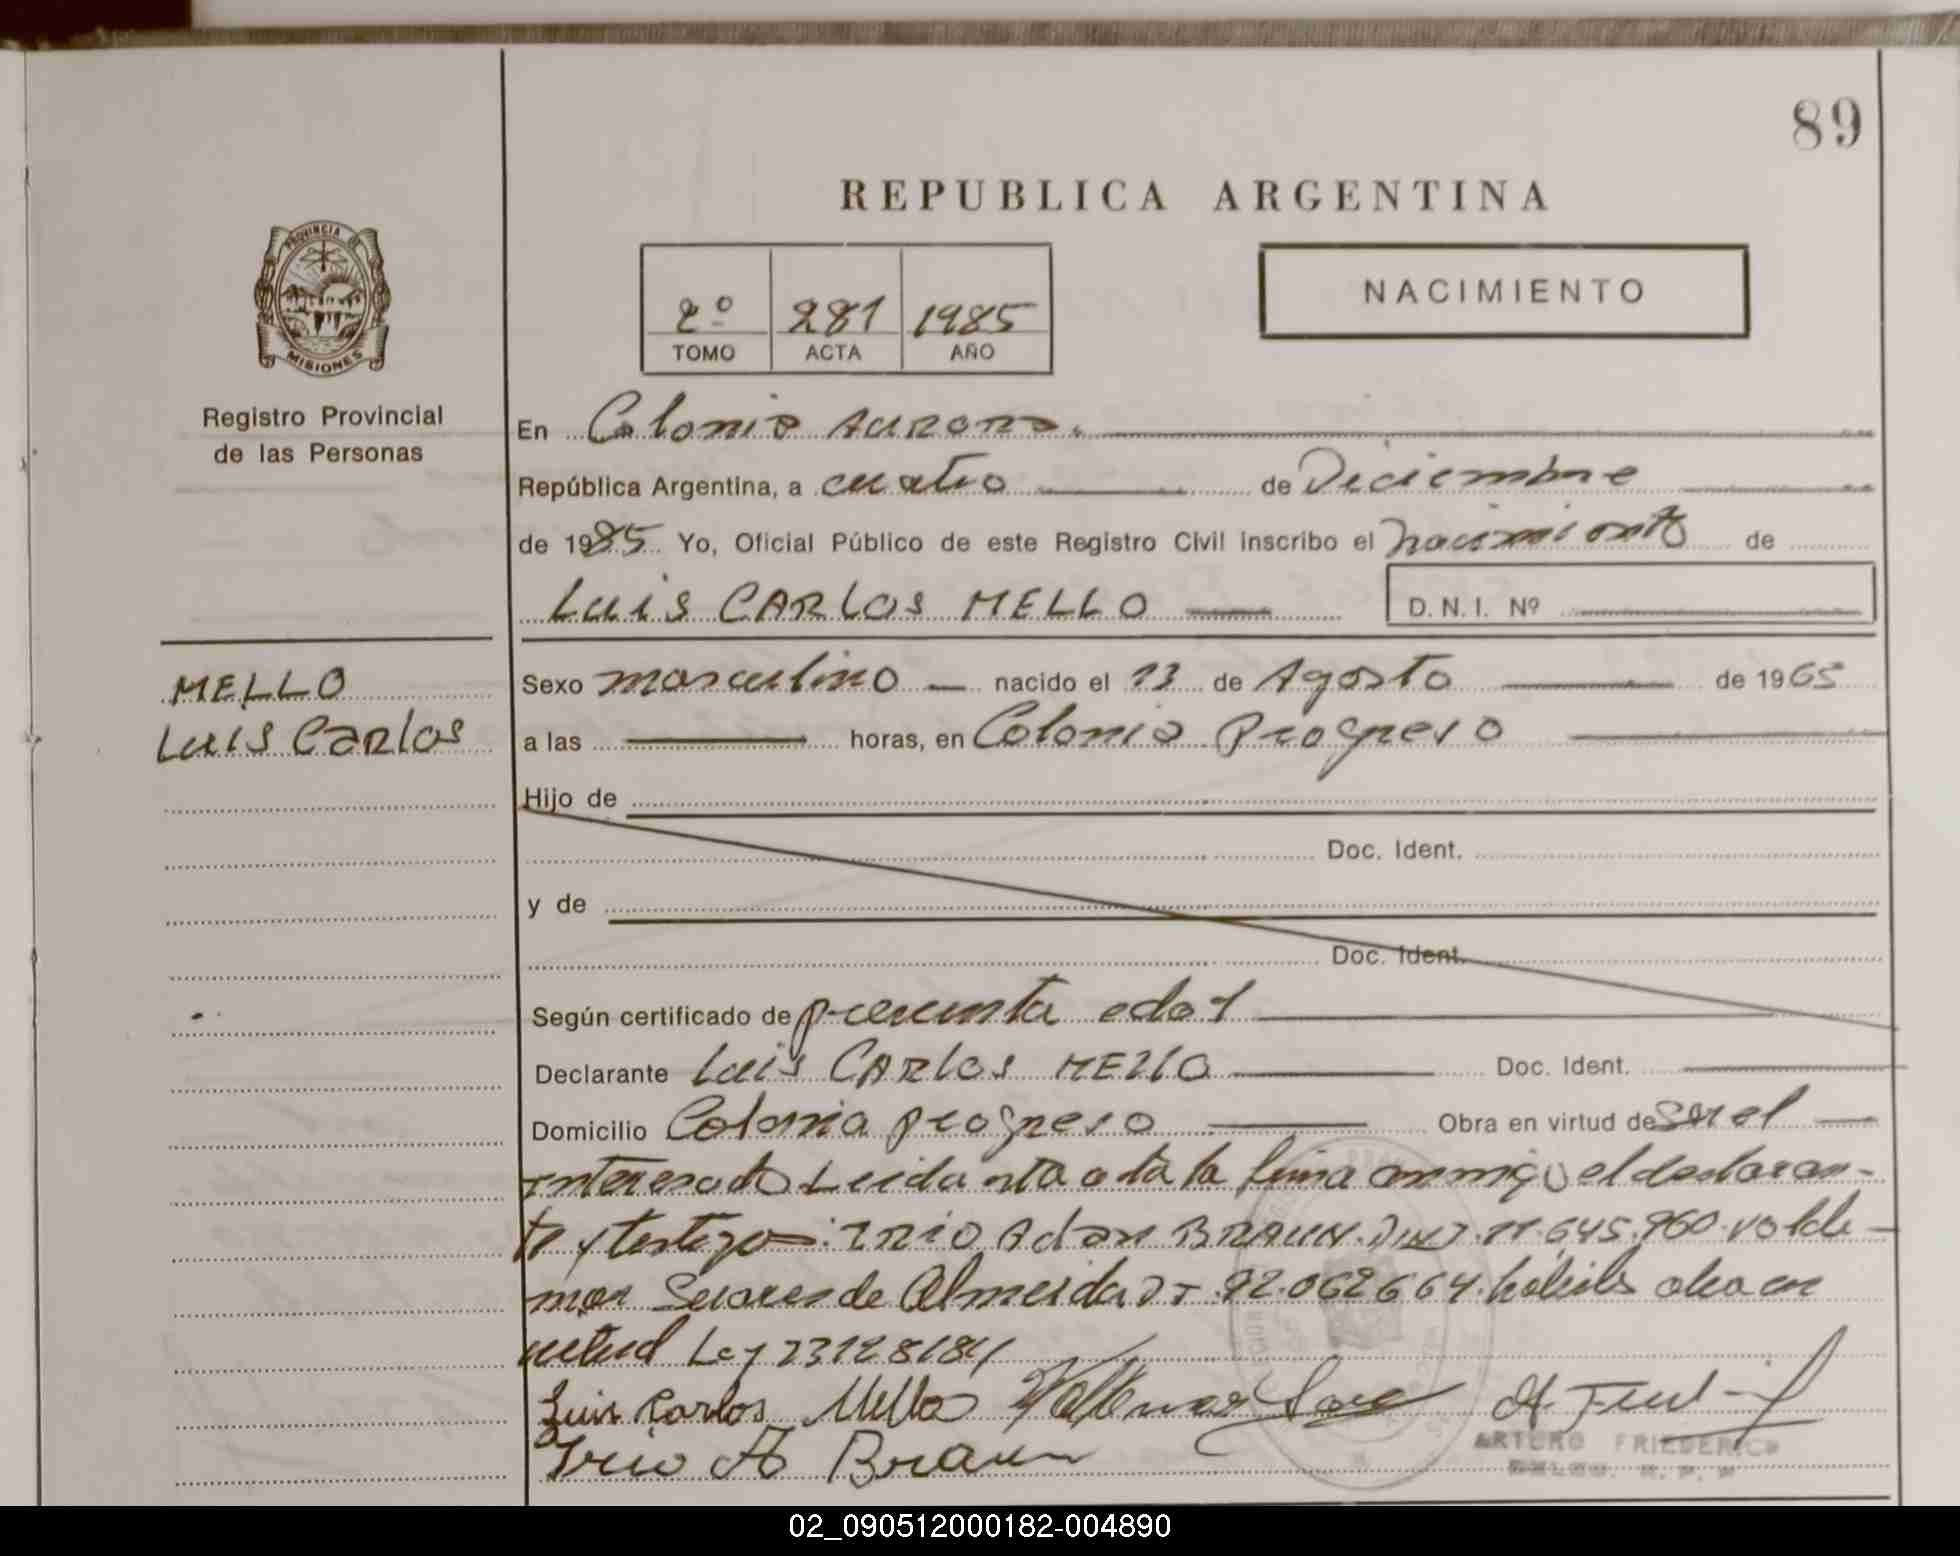 89
REPUBLICA ARGENTINA
PROVINCIA DE
MISIONES
Registro Provincial
de las Personas
2º 281 1985
TOMO ACTA AÑO
NACIMIENTO
En Colonia Aurora.
República Argentina, a cuatro de Diciembre
de 1985 Yo, Oficial Público de este Registro Civil inscribo el nacimiento de
Luis CARLOS MELLO D.N.I. Nº
MELLO
Luis Carlos
Sexo masculino nacido el 13 de Agosto de 1965
a las horas, en Colonia Progreso
Hijo de
Doc. Ident.
y de
Doc. Ident.
Según certificado de presunta edad
Declarante Luis CARLOS MELLO Doc. Ident.
Domicilio Colonia progreso Obra en virtud de ser el
interesado Leida esta acta la firma conmigo el declaran-
te y testigos: IRIO Adan BRAUN. DNI. 11.645.960. Valde
mar Suares de Almeida DI 92.062664. habiles obra en
virtud Ley 23128/84
Luis Carlos Mello Valdemar Soare
Irio A Braun
ARTURO FRIEDERICH
02_090512000182-004890